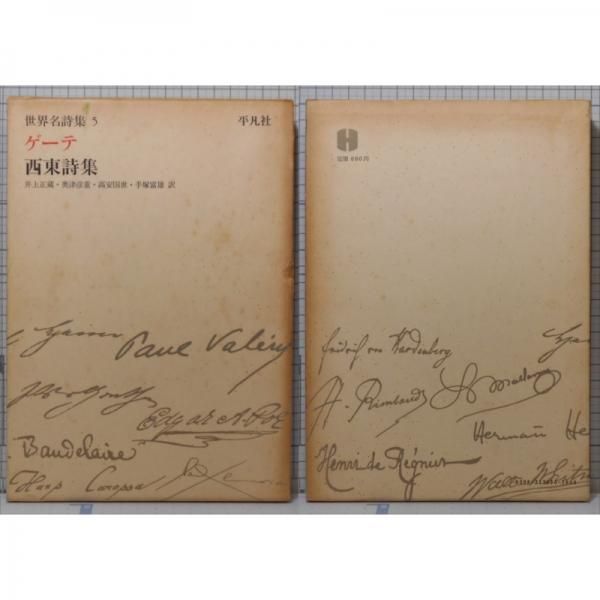 世界名詩集 5
平凡社
ゲーテ
西東詩集
井上正蔵・奥津彦重・高安国世・手塚富雄 訳
Paul Valéry
Edgar A. Poe
Baudelaire
Hans Carossa
H
定価 690円
Friedrich von Hardenberg
A. Rimbaud
Hermann He
Henri de Régnier
Walt Whit